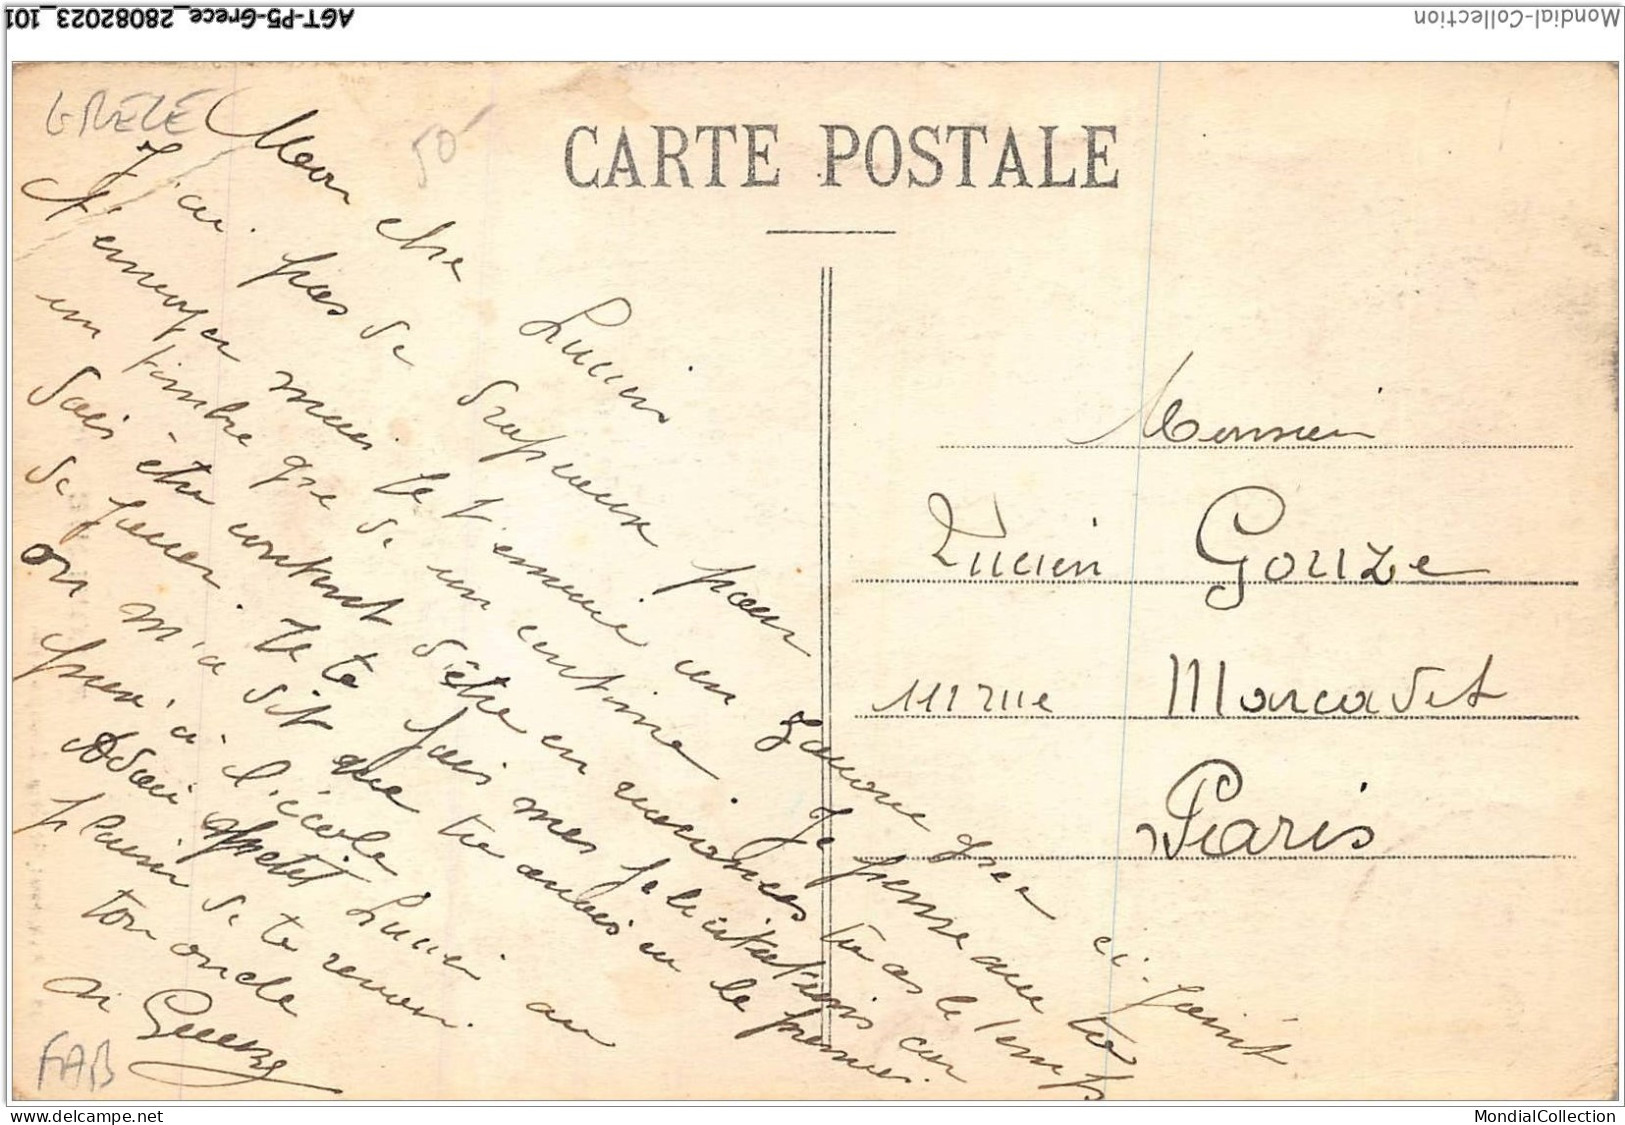 AGT-P5-Grece_28082023_101
Mondial-Collection
GRECE
50
CARTE POSTALE
Mon cher Lucien
J'ai pas de drapeaux pour
t'envoyer mais je t'envoie un grec ci-joint
un timbre que de un centime Je pense que tu
dois être content d'être en vacances tu as le temps
de jouer. Je te fais mes félicitations car
on m'a dit que tu avais eu le premier
prix à l'école
Lucien au
plaisir de te revoir.
ton oncle
Monsieur
Lucien Gouze
111 rue Marcadet
Paris
FAB
www.delcampe.net
MondialCollection